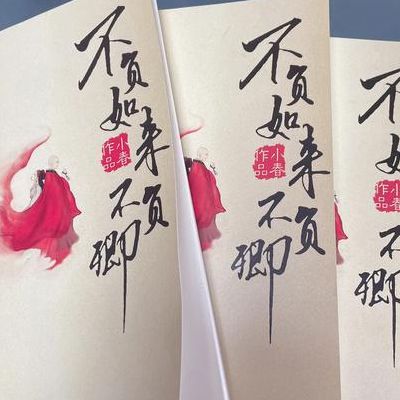 不负如来不负卿
小春
作品
不负如来不负卿
小春
作品
不
如
小春
作品
不
卿